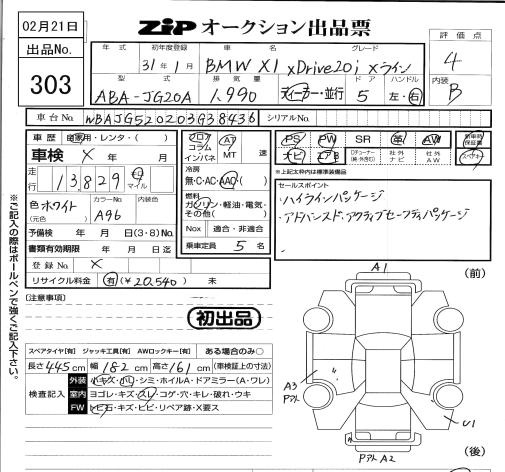 02月21日
ZiP オークション出品票
出品No.
303
年式 初年度登録 車名 グレード
31年1月 BMW X1 xDrive20i Xライン
型式 排気量 ドア ハンドル
ABA-JG20A 1,990 ディーラー・並行 5 左・右
評価点
4
内装
B
車台No. WBAJG520203G38436 シリアルNo.
車歴 自家用・レンタ・( )
車検 X 年 月
走行 13829 km マイル
色 ホワイト (元色) カラーNo. A96 内装色
予備検 年 月 日(3・8)No.
書類有効期限 年 月 日
登録No. X
リサイクル料金 有(¥20,540) 未
フロア コラム インパネ
AT MT 速
冷房
無・C・AC・AAC・( )
燃料
ガソリン・軽油・電気・その他( )
Nox 適合・非適合
乗車定員 5 名
PS PW SR 革 AW 新車時保証書
ナビ エアB 社外ナビ 社外AW スペアキー
※上記太枠内は標準装備品
セールスポイント
・ハイラインパッケージ
・アドバンスド・アクティブセーフティパッケージ
※ご記入の際はボールペンで強くご記入下さい。
[注意事項]
初出品
スペアタイヤ[有] ジャッキ工具[有] AWロックキー[有] ある場合のみ○
長さ 445cm 幅 182cm 高さ 161cm (車検証上の寸法)
検査記入
外装 小キズ・小凹・シミ・ホイルA・ドアミラー(A・ワレ)
室内 ヨゴレ・キズ・スレ・コゲ・穴・キレ・破れ・ウキ
FW トビ石・キズ・ヒビ・リペア跡・X要ス
A1
(前)
A3
Pアト
U1
PアトA2
(後)